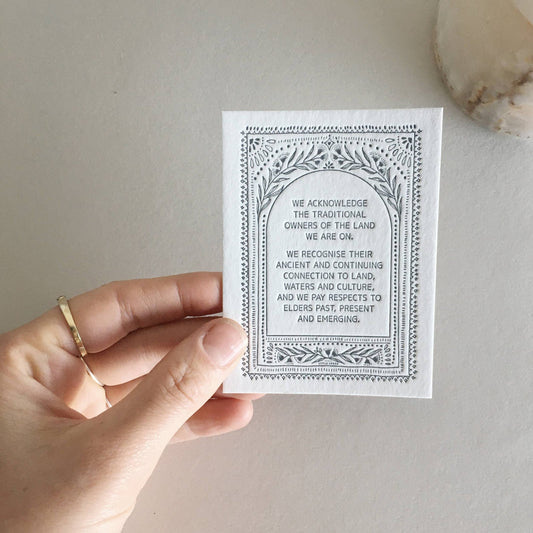 WE ACKNOWLEDGE
THE TRADITIONAL
OWNERS OF THE LAND
WE ARE ON.
WE RECOGNISE THEIR
ANCIENT AND CONTINUING
CONNECTION TO LAND,
WATERS AND CULTURE,
AND WE PAY RESPECTS TO
ELDERS PAST, PRESENT
AND EMERGING.